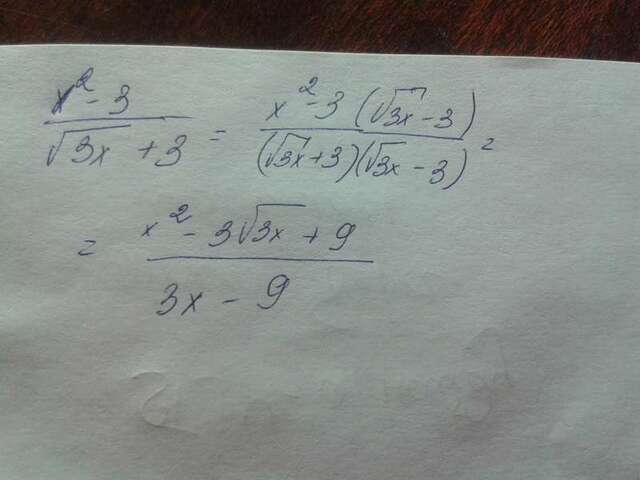 x² - 3 / √3x + 3 = x² - 3 (√3x - 3) / (√3x + 3)(√3x - 3) =
= x² - 3√3x + 9 / 3x - 9